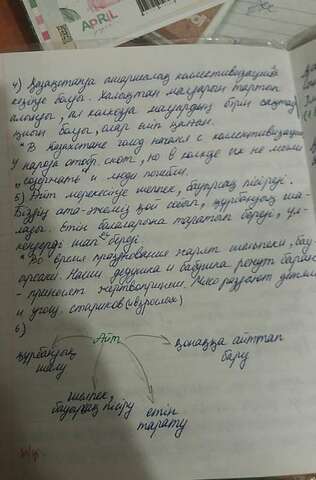 APRIL
4) Қазақстанда ашаршылық коллективизация
кезінде болды. Халықтан малдарын тартып
алынды, ал колхозда малдардың бәрін сақтау
қиын болды, олар өліп қалған.
"В Казахстане голод начался с коллективизации
У народа отобр. скот, но в колхозе их не могли
содержать и люди погибли.
5) Айт мерекесінде шелпек, бауырсақ пісіреді.
Біздің ата-әжеміз қой сойып, құрбандық ша-
лады. Етін балаларына таратып береді, үл-
кендерді шап береді.
"Во время празднования жарят шелпеки, бау-
ырсаки. Наши дедушка и бабушка режут барана
- приносят жертвоприн. Мясо раздают детям
и угощ. стариков (взрослых)
6)
Айт
құрбандық
шалу
қонаққа айттап
бару
шелпек,
бауырсақ пісіру
етін
тарату